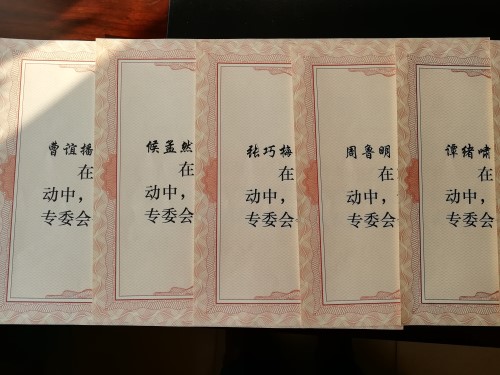 曹谊播
在
动中，
专委会
候孟然
在
动中，
专委会
张巧梅
在
动中，
专委会
周鲁明
在
动中，
专委会
谭绪啸
在
动中，
专委会